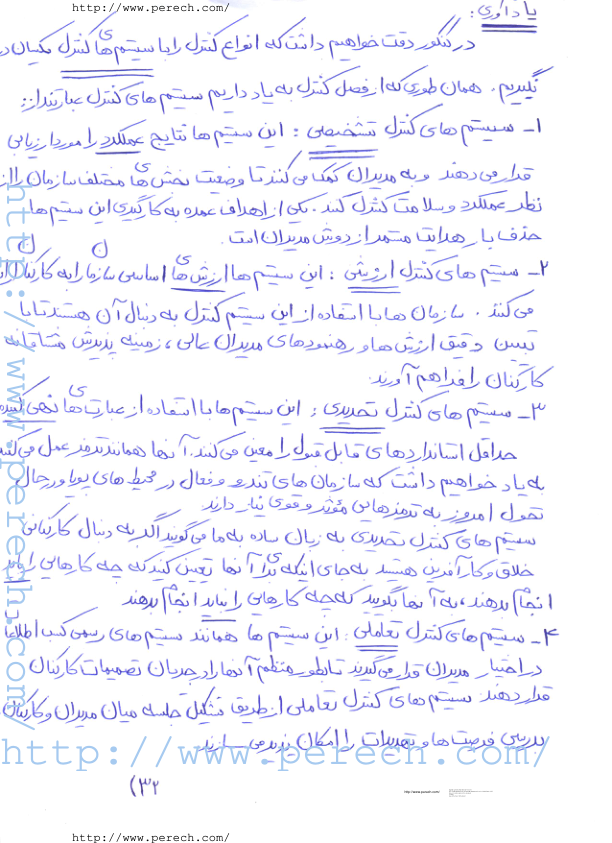 http://www.perech.com/
یادآوری:
در کنکور دقت خواهیم داشت که انواع کنترل را با سیستم های کنترل یکسان در
نگیریم. همان طوری که از فصل کنترل به یاد داریم سیستم های کنترل عبارتنداز:
۱- سیستم های کنترل تشخیصی: این سیستم ها نتایج عملکرد را مورد ارزیابی
قرار می دهند و به مدیران کمک می کنند تا وضعیت بخش های مختلف سازمان را از
نظر عملکرد و سلامت کنترل کنند. یکی از اهداف عمده به کارگیری این سیستم ها
حذف بار هدایت مستمر از دوش مدیران است.
۲- سیستم های کنترل ارزشی: این سیستم ها ارزش های اساسی سازمان را به کارکنان
می کنند. سازمان ها با استفاده از این سیستم کنترل به دنبال آن هستند تا با
تبیین دقیق ارزش ها و رهنمودهای مدیران عالی، زمینه پذیرش مشتاقانه
کارکنان را فراهم آورند.
۳- سیستم های کنترل تحدیدی: این سیستم ها با استفاده از عبارت های نهی کننده
حداقل استانداردهای قابل قبول را معین می کنند. آنها همانند ترمز عمل می کنند
به یاد خواهیم داشت که سازمان های تندرو و فعال در محیط های پویا و در حال
تحول امروز به ترمزهایی مؤثر و قوی نیاز دارند
سیستم های کنترل تحدیدی به زبان ساده به ما می گویند اگر به دنبال کارکنانی
خلاق و کارآفرین هستید به جای اینکه برای آنها تعیین کنید که چه کارهایی را باید
انجام بدهند، به آنها بگویید که چه کارهایی را نباید انجام بدهند
۴- سیستم های کنترل تعاملی: این سیستم ها همانند سیستم های رسمی کسب اطلاعات
در اختیار مدیران قرار می گیرند تا بطور منظم آنها را در جریان تصمیمات کارکنان
قرار دهند. سیستم های کنترل تعاملی از طریق تشکیل جلسه میان مدیران و کارکنان
بررسی فرصت ها و تهدیدات را امکان پذیر می سازند.
http://www.perech.com/
http://www.perech.com/
(۳۲
http://www.perech.com/
http://www.perech.com/